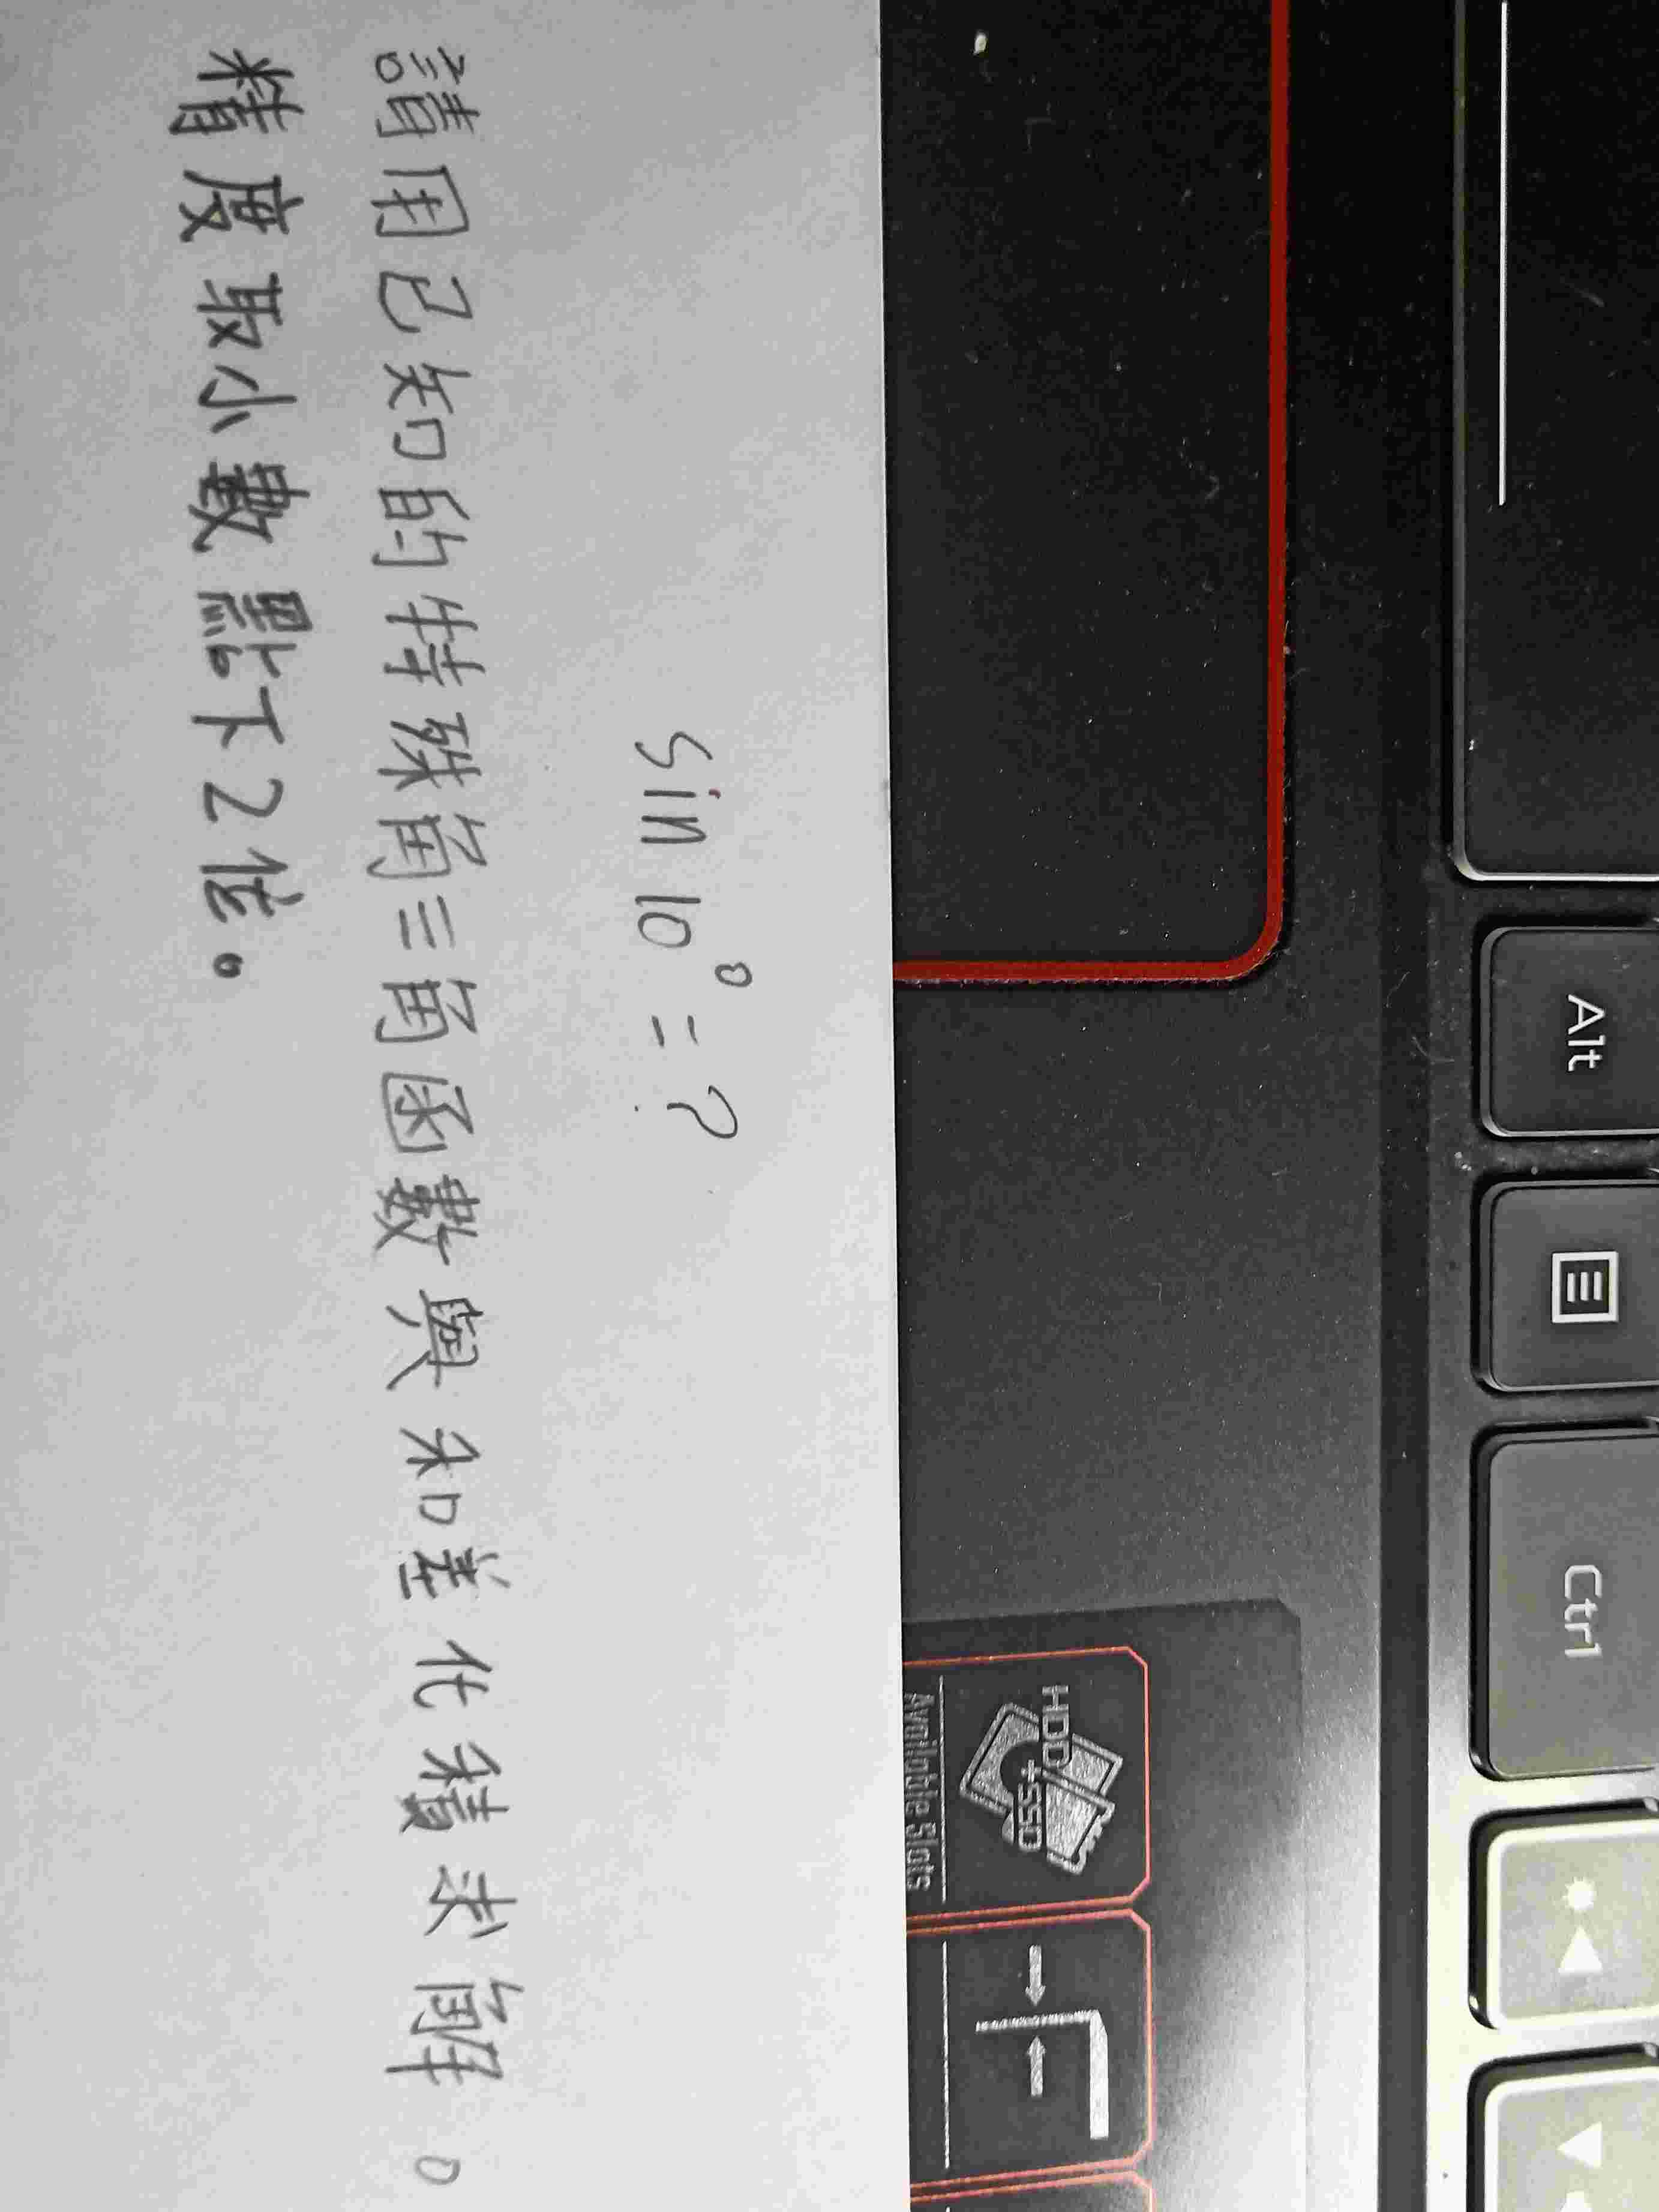 sin 10° = ?
請用已知的特殊角三角函數與和差化積求解。
精度取小數點下2位。
Alt
Ctrl
HDD
+SSD
Available Slots